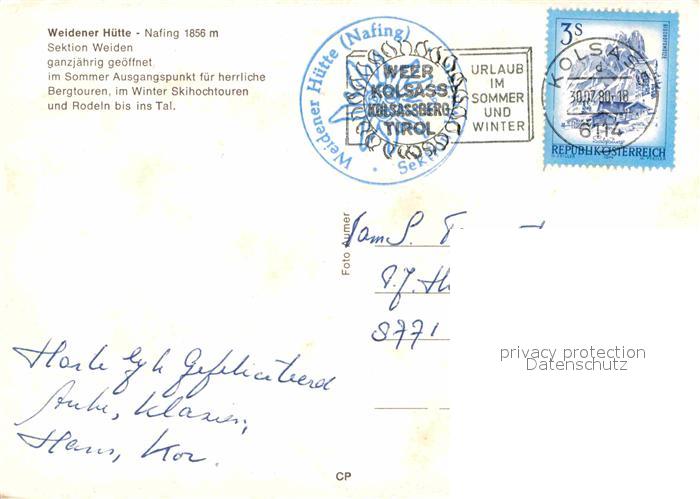 Weidener Hütte - Nafing 1856 m
Sektion Weiden
ganzjährig geöffnet
im Sommer Ausgangspunkt für herrliche
Bergtouren, im Winter Skihochtouren
und Rodeln bis ins Tal.
Weidener Hütte (Nafing)
Sektion
WEER
KOLSASS
KOLSASSBERG
TIROL
URLAUB
IM
SOMMER
UND
WINTER
KOLSASS
d
30.07.80-18
6114
3S
REPUBLIK ÖSTERREICH
Foto Aumer
Fam S. T
P.J. Th
8771
privacy protection
Datenschutz
Gefeliciteerd
Anke, Klasien,
Hans, Kor.
CP